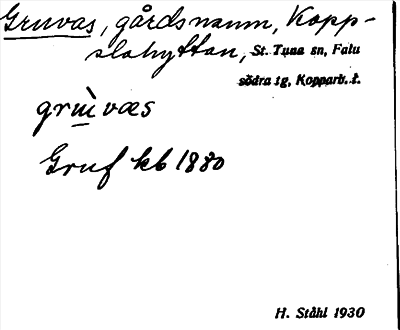 Gruvas, gårdsnamn, Kopp-
slahyttan, St. Tuna sn, Falu
södra tg, Kopparb. l.
grùvas
Gruf kb 1880
H. Ståhl 1930